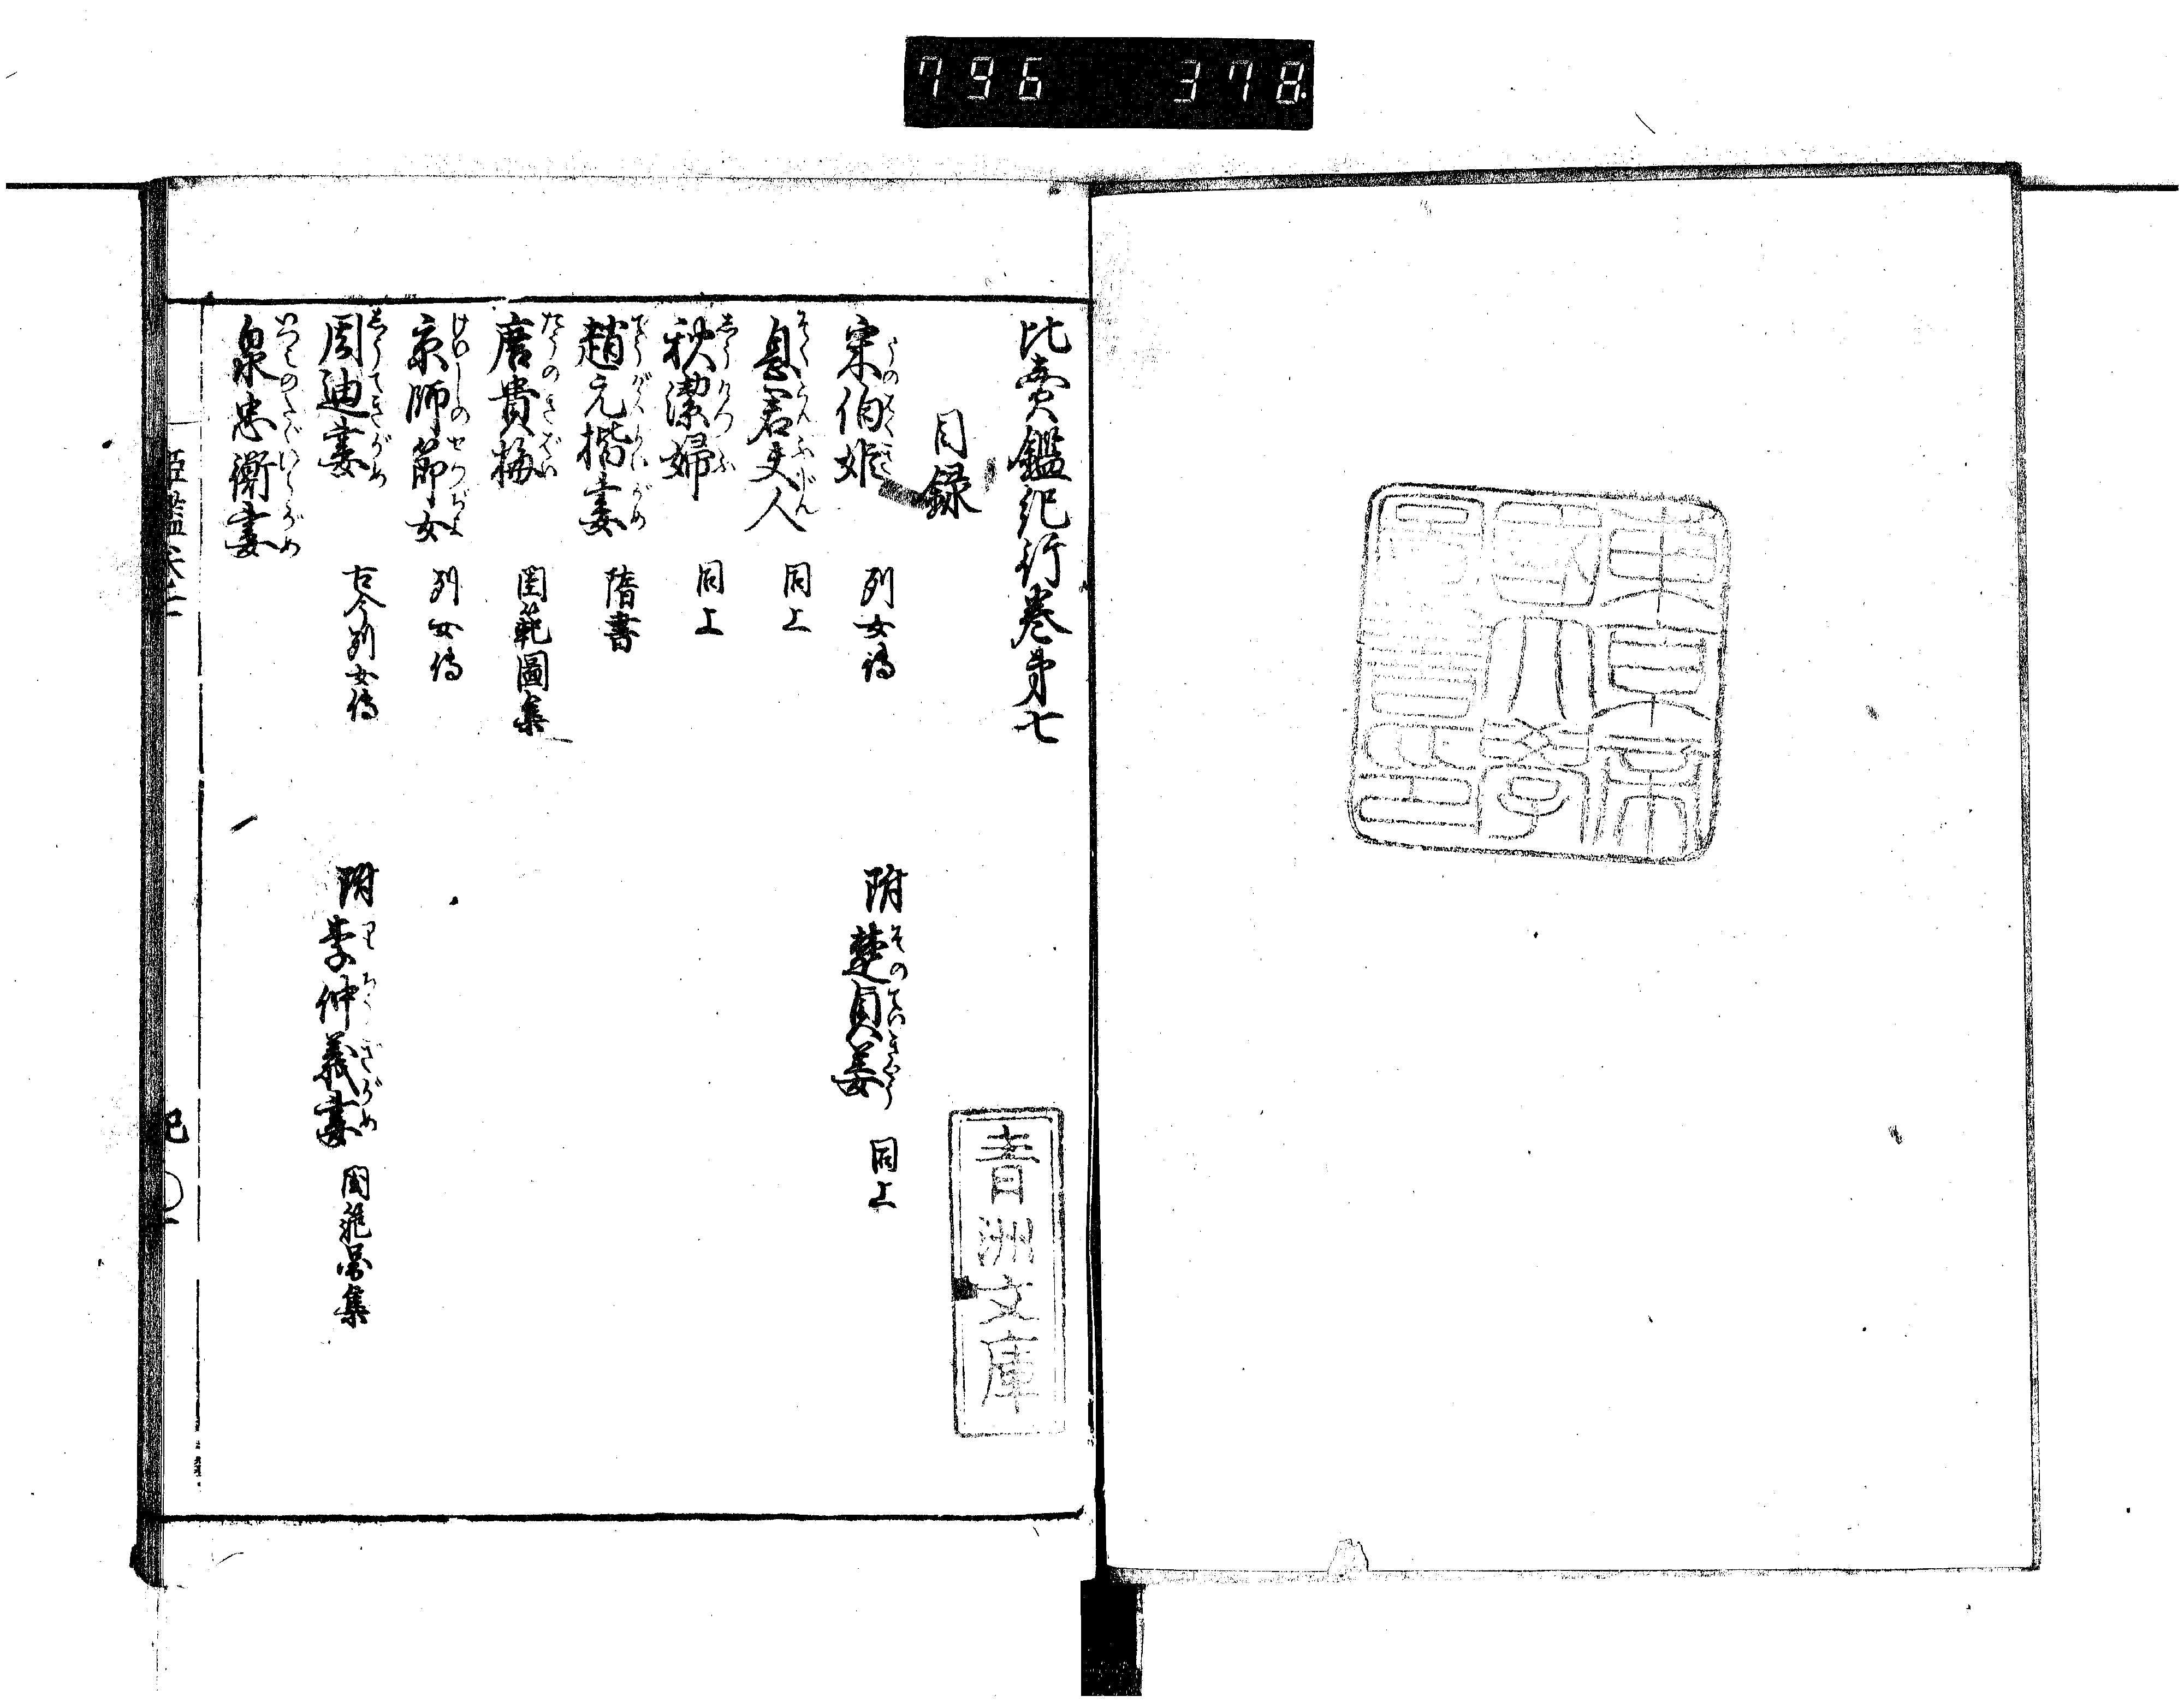 796 378
東京帝
國大學
圖書印
比賣鑑紀行巻第七
目録
青洲文庫
宋伯姫 列女傳 附 楚貞姜 同上
息君夫人 同上
秋潔婦 同上
趙元楷妻 隋書
唐貴梅 閨範圖集
京師節女 列女傳
周迪妻 古今列女傳 附 李仲義妻 閨範圖集
泉忠衡妻